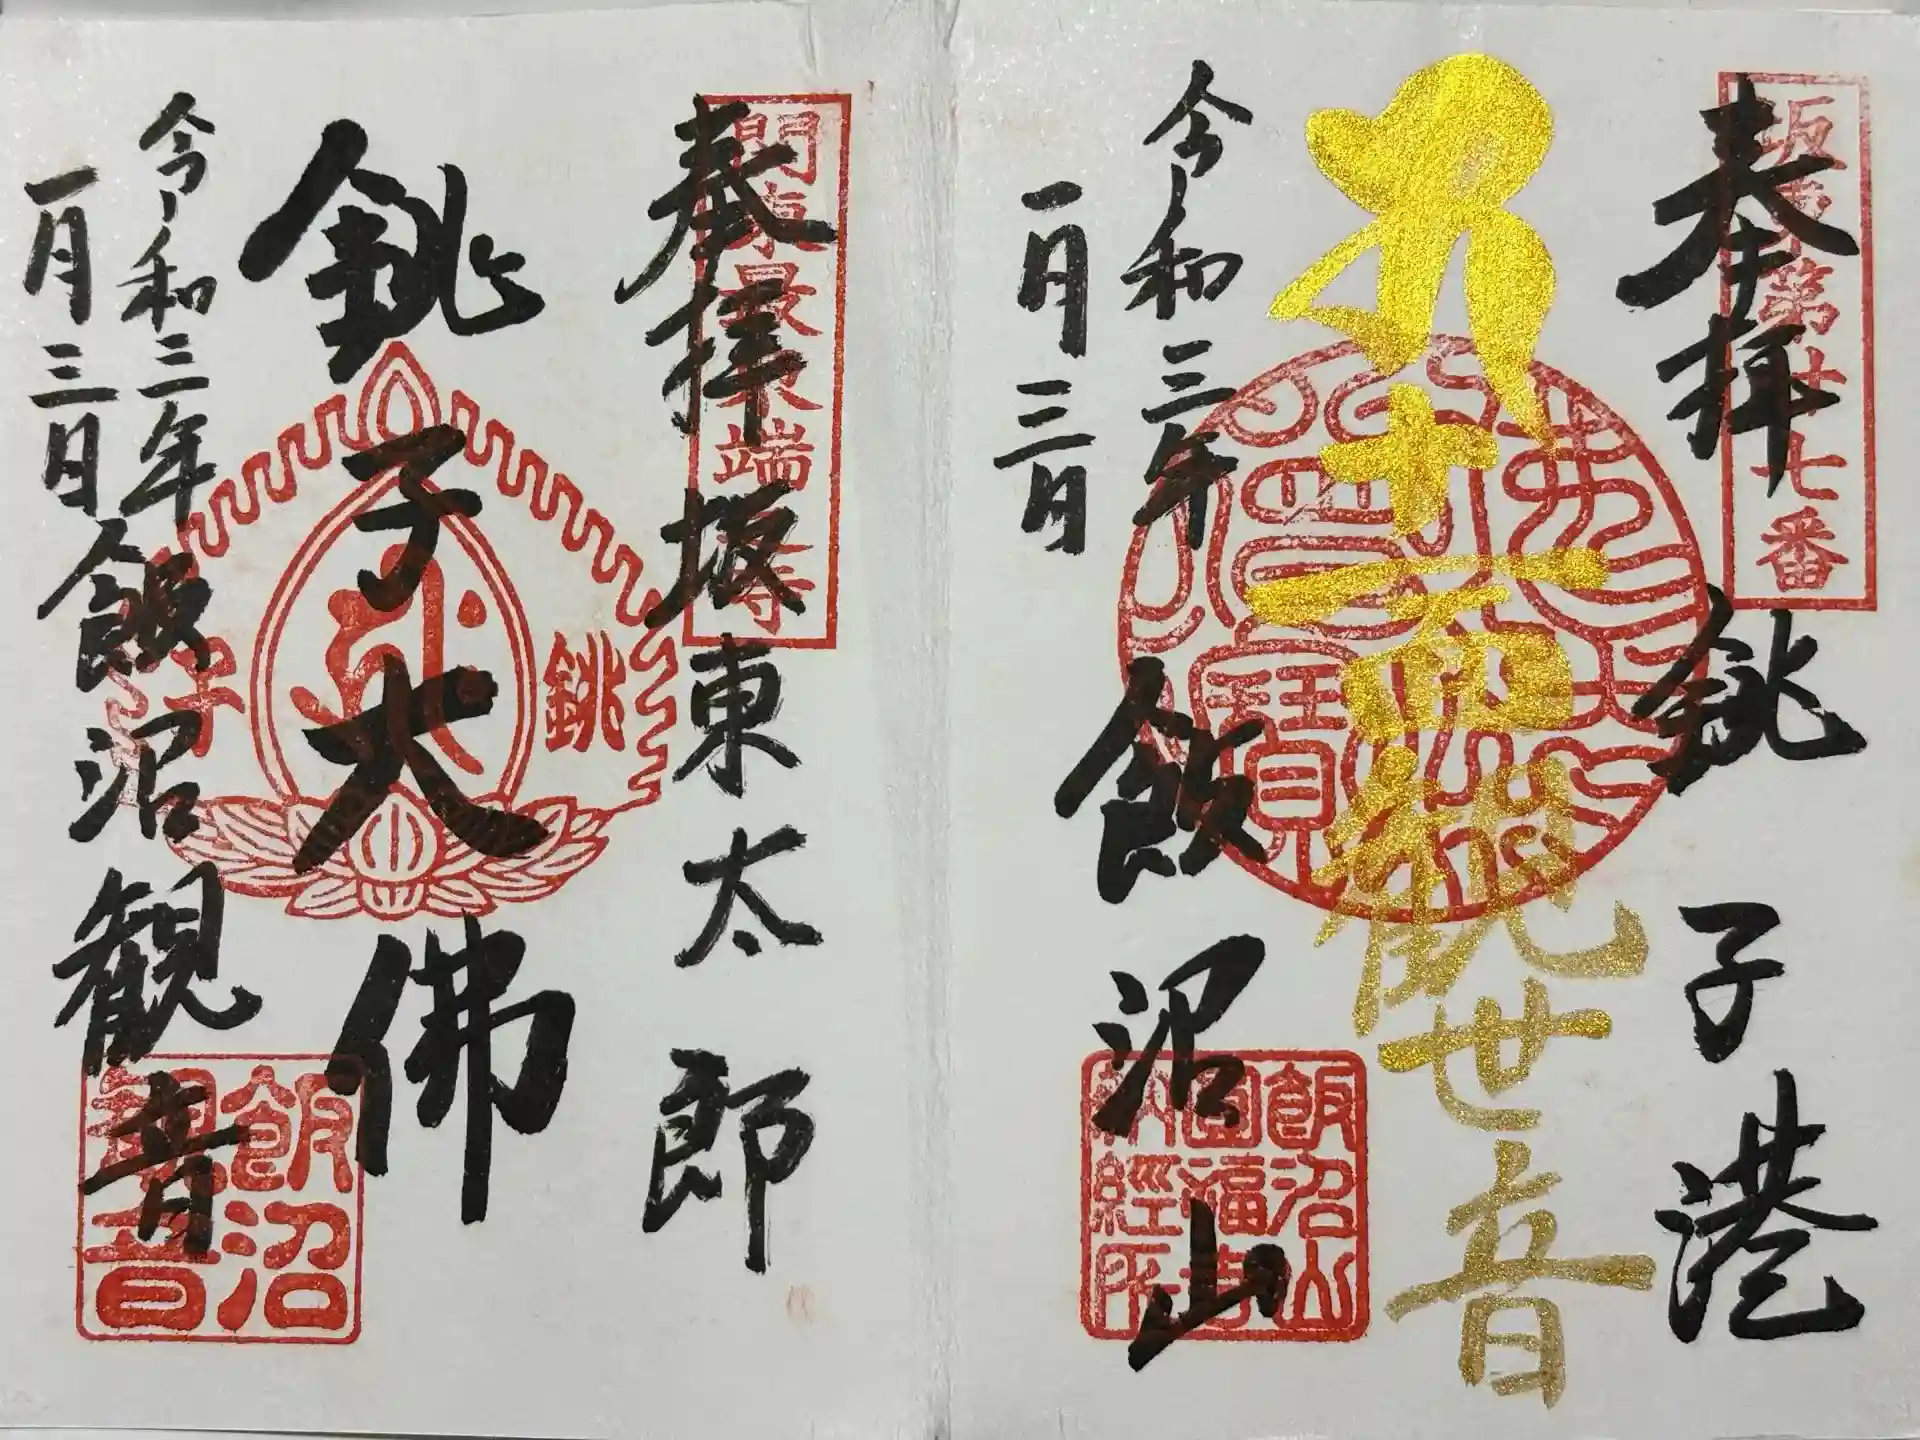 奉拝
坂東第廿七番
銚子港
十一面観世音
令和三年
一月三日
飯沼山
飯沼山
圓福寺
納経所
奉拝
関東最東端
坂東太郎
銚子大佛
銚子
令和三年
一月三日
飯沼観音
飯沼
観音